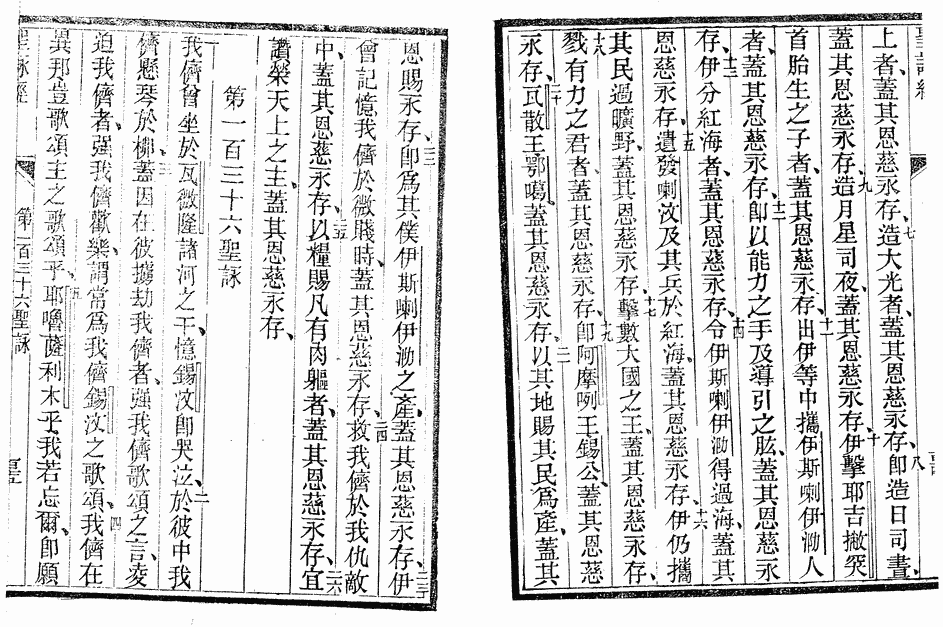 上者、蓋其恩慈永存、七造大光者、蓋其恩慈永存、八卽造日司晝、
蓋其恩慈永存、九造月星司夜、蓋其恩慈永存、十伊擊耶吉撇突
首胎生之子者、蓋其恩慈永存、十一出伊等中攜伊斯喇伊泐人
者、蓋其恩慈永存、十二卽以能力之手及導引之肱、蓋其恩慈永
存、十三伊分紅海者、蓋其恩慈永存、十四令伊斯喇伊泐得過海、蓋其
恩慈永存、十五遣發喇汶及其兵於紅海、蓋其恩慈永存、十六伊仍攜
其民過曠野、蓋其恩慈永存、十七擊數大國之王、蓋其恩慈永存、
十八戮有力之君者、蓋其恩慈永存、十九卽阿摩咧王錫公、蓋其恩慈
永存、二十瓦散王鄂噶、蓋其恩慈永存、二一以其地賜其民爲產、蓋其
恩賜永存、二二卽爲其僕伊斯喇伊泐之產、蓋其恩慈永存、二三伊
會記憶我儕於微賤時、蓋其恩慈永存、二四救我儕於我仇敵
中、蓋其恩慈永存、二五以糧賜凡有肉軀者、蓋其恩慈永存、二六宜
讚榮天上之主、蓋其恩慈永存、
第一百三十六聖詠
我儕曾坐於瓦微隆諸河之干、憶錫汶卽哭泣、二於彼中我
儕懸琴於柳、三蓋因在彼擄劫我儕者、强我儕歌頌之言、凌
迫我儕者、强我儕歡樂、謂當爲我儕錫汶之歌頌、四我儕在
異邦、豈歌頌主之歌頌乎、五耶嚕薩利木乎、我若忘爾、卽願
聖詠經
第一百三十六聖詠